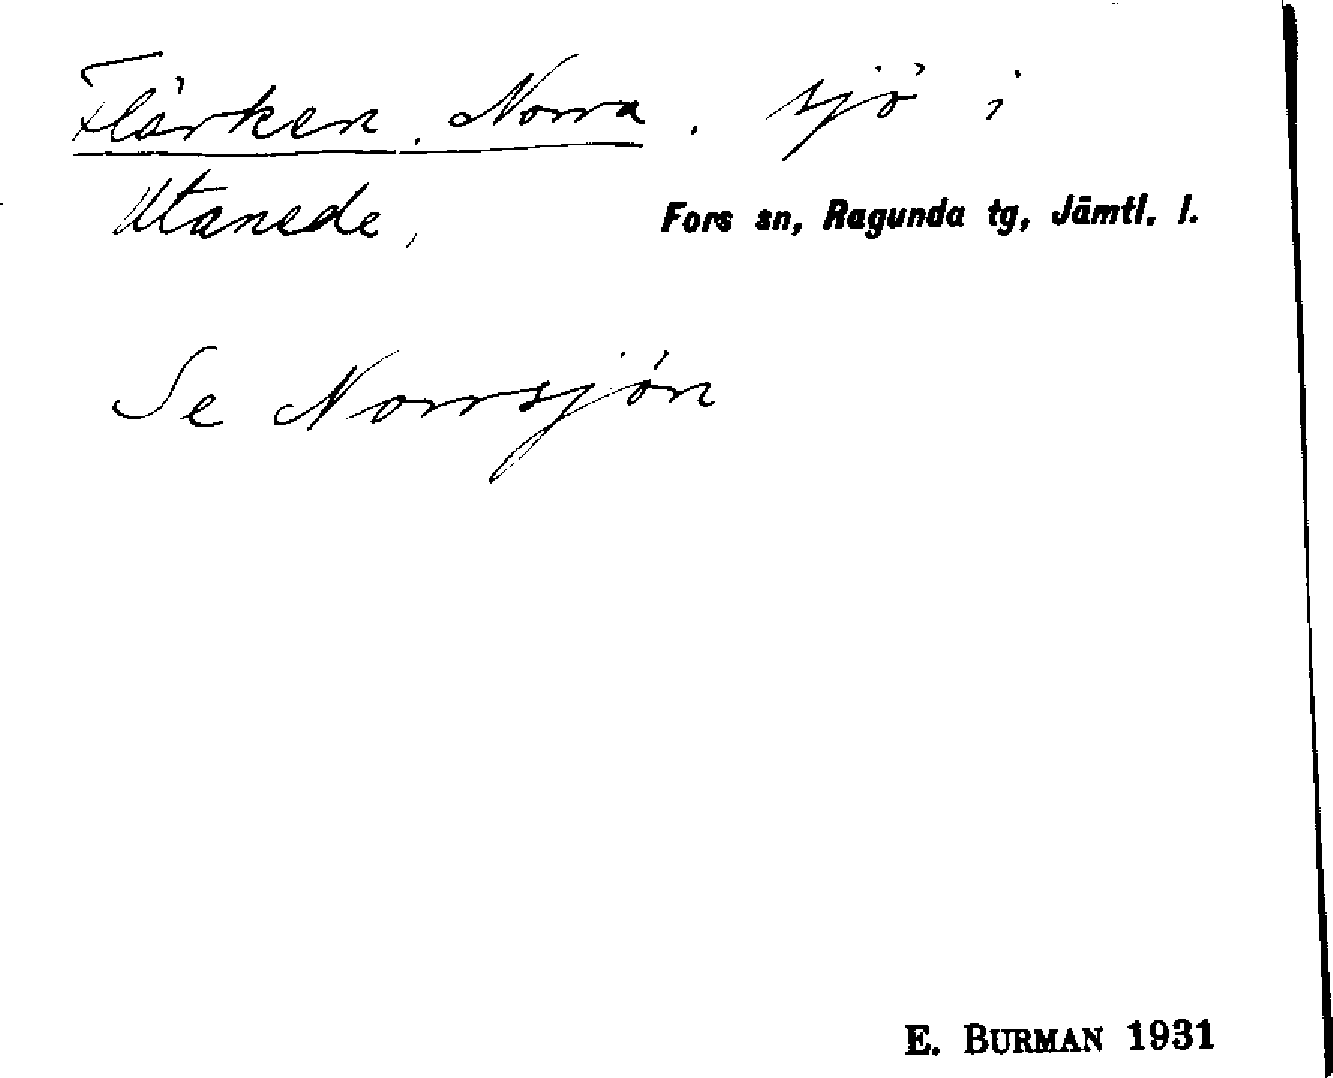 Flärken, Norra, sjö i
Utanede, Fors sn, Ragunda tg, Jämtl. l.
Se Norrsjön
E. BURMAN 1931